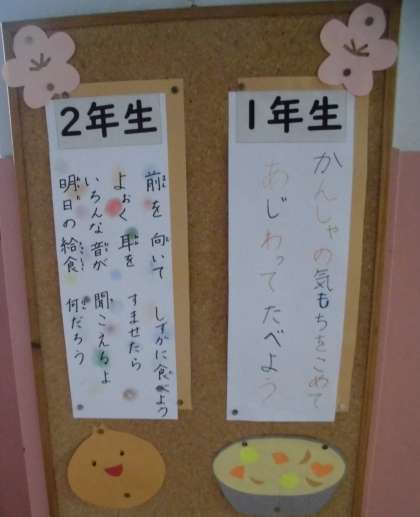 1年生
かんしゃの気もちをこめて
あじわってたべよう
2年生
前を向いて しずかに食べよう
よぉく耳を すませたら
いろんな音が 聞こえるよ
明日の給食 何だろう